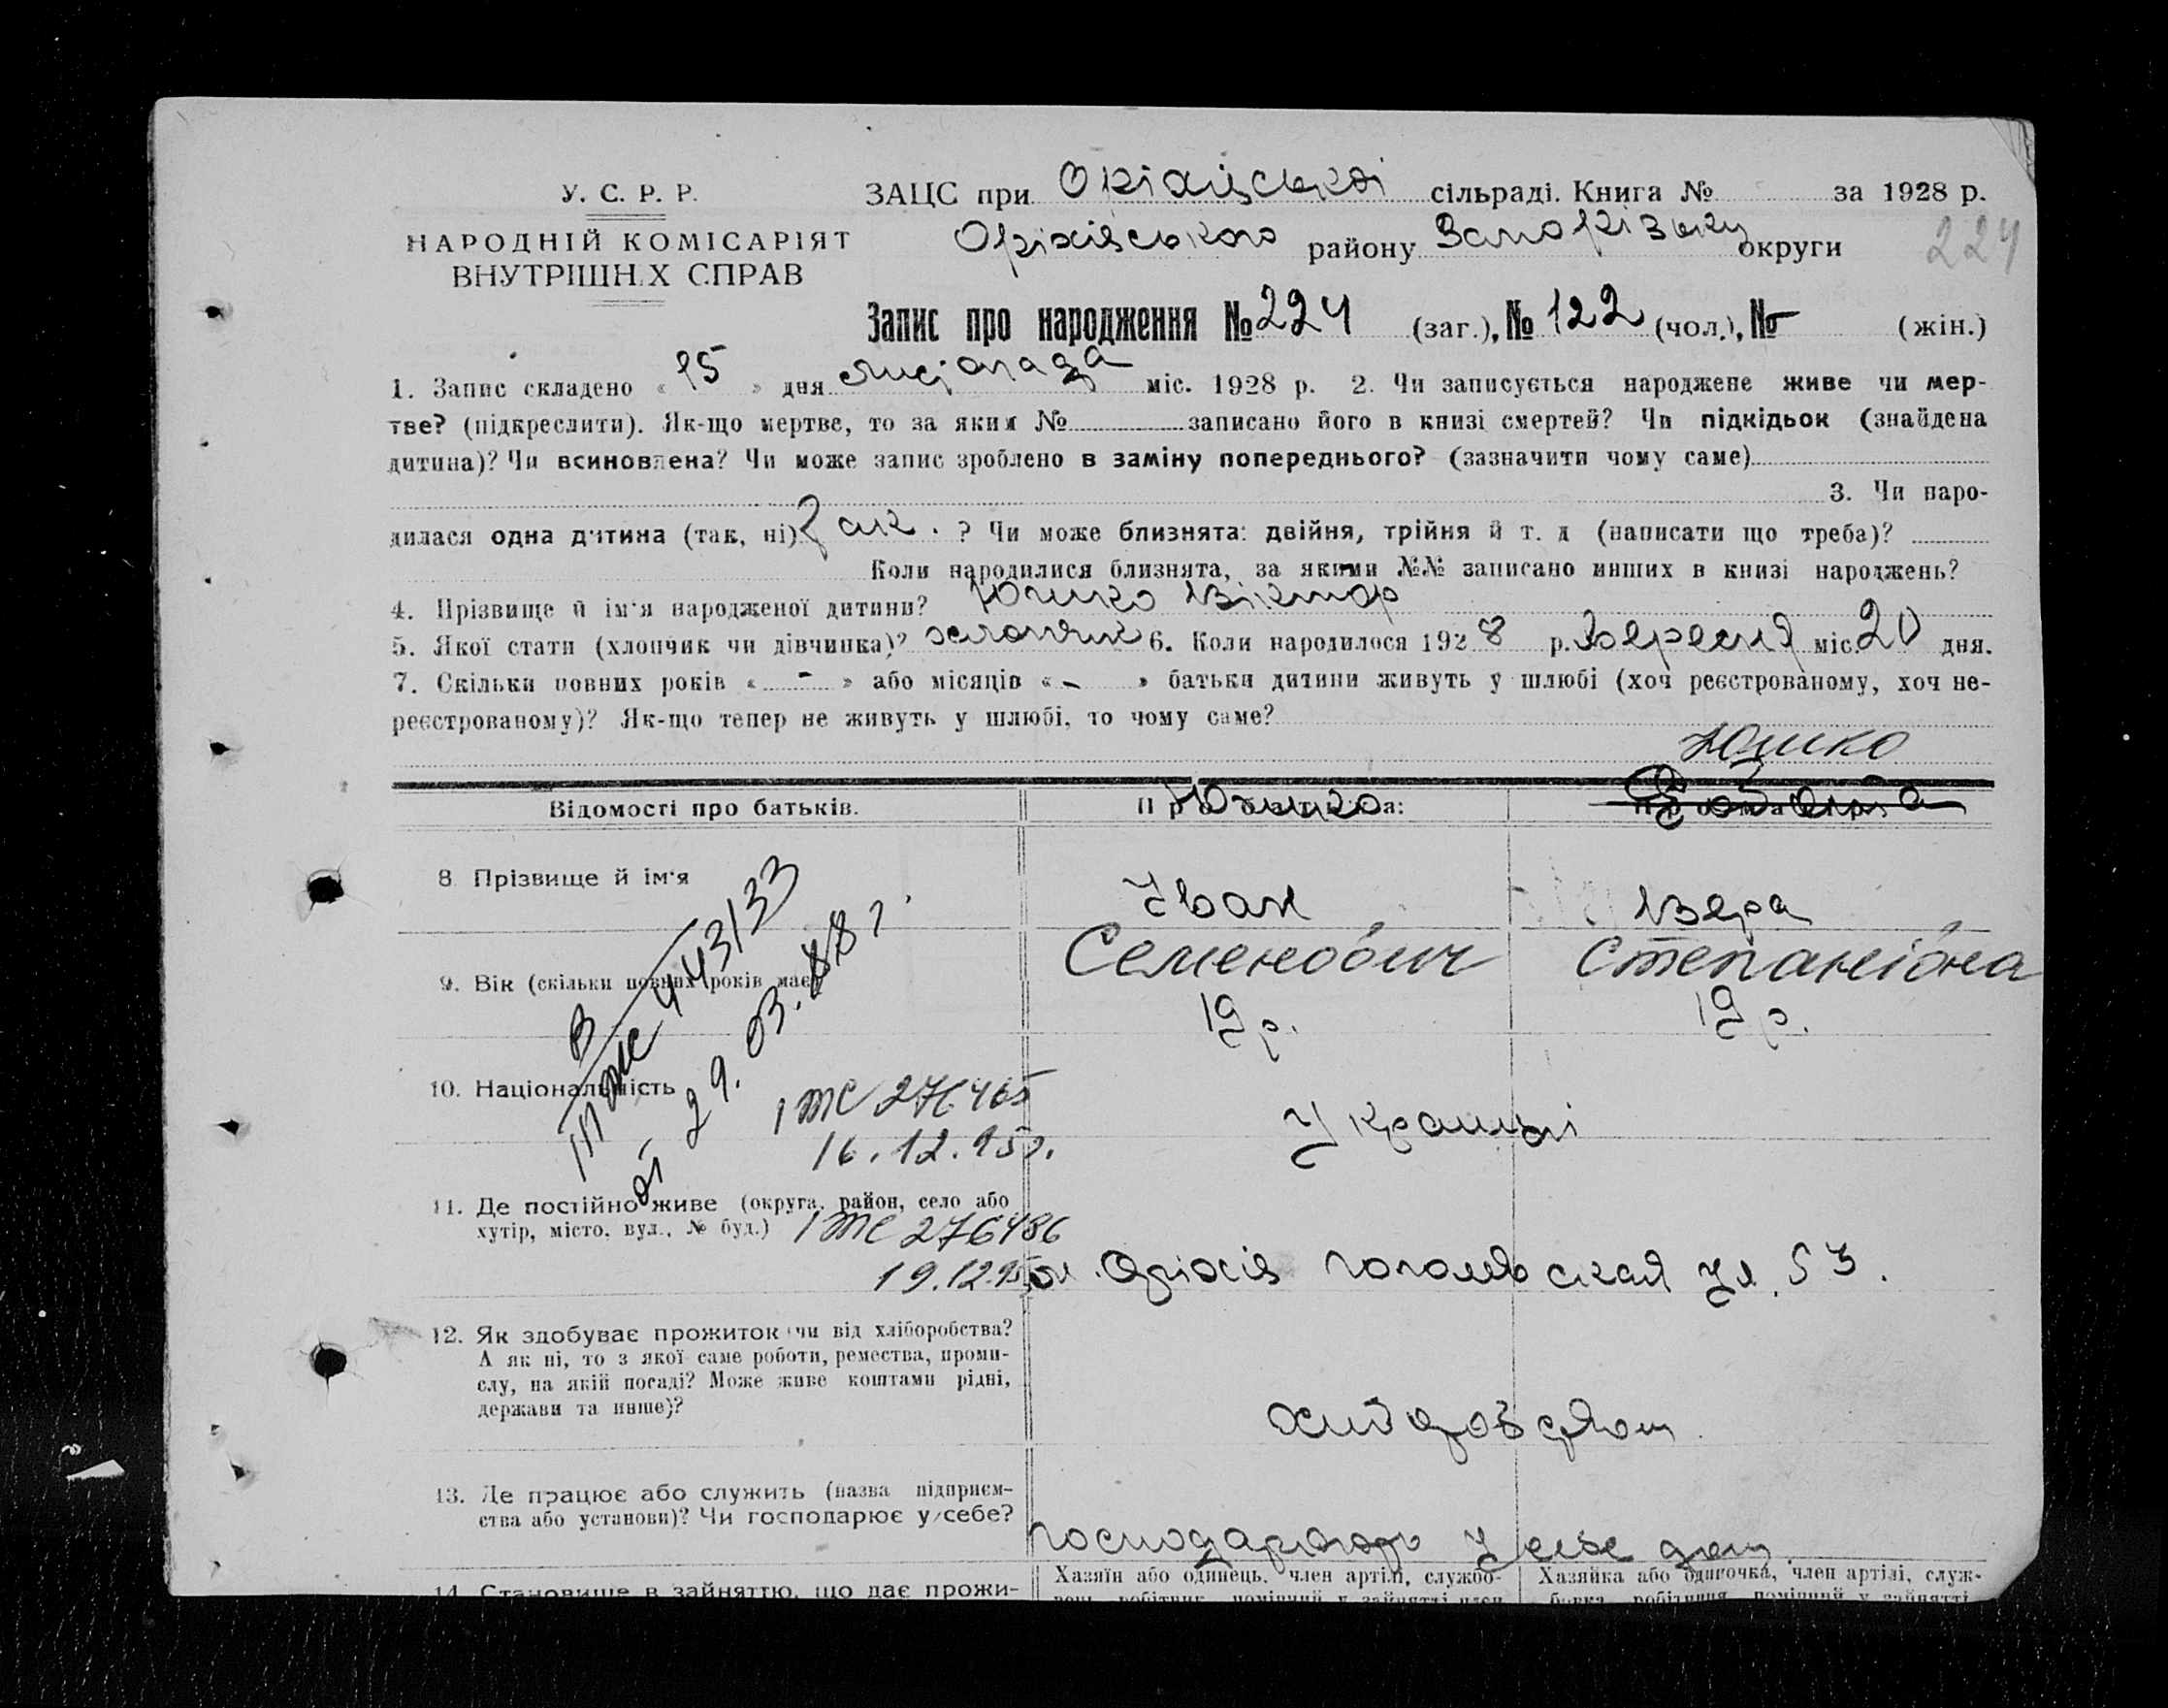 У. С. Р. Р.
НАРОДНІЙ КОМІСАРІЯТ
ВНУТРІШН.Х СПРАВ
ЗАЦС при Оріхівські сільраді. Книга № за 1928 р.
Оріхівського району Запорізьку округи
224
Запис про народження № 224 (заг.), № 122 (чол.), № — (жін.)
1. Запис складено « 15 » дня листопада міс. 1928 р. 2. Чи записується народжене живе чи мер-
тве? (підкреслити). Як-що мертве, то за яким № записано його в книзі смертей? Чи підкідьок (знайдена
дитина)? Чи всиновлена? Чи може запис зроблено в заміну попереднього? (зазначити чому саме)
3. Чи наро-
дилася одна дитина (так, ні) Так. ? Чи може близнята: двійня, трійня й т. д (написати що треба)?
Коли народилися близнята, за якими №№ записано инших в книзі народжень?
4. Прізвище й ім'я народженої дитини? Юшко Віктор
5. Якої стати (хлопчик чи дівчинка)? хлопчик 6. Коли народилося 1928 р. Вересня міс. 20 дня.
7. Скільки повних років « - » або місяців « - » батьки дитини живуть у шлюбі (хоч реєстрованому, хоч не-
реєстрованому)? Як-що тепер не живуть у шлюбі, то чому саме?
Юшко
Відомості про батьків.
Про батька:
Юшко
8. Прізвище й ім'я
Іван
Вера
Семенович
Степанівна
9. Вік (скільки повних років має)
19 р.
19 р.
10. Національність
Україньці
443133
от 29.03.88 г.
276465
16.12.95г.
11. Де постійно живе (округа, район, село або
хутір, місто, вул., № буд.)
276486
19.12.95
м. Оріхів Гоголевская ул. 53.
12. Як здобуває прожиток (чи від хліборобства?
А як ні, то з якої саме роботи, ремества, проми-
слу, на якій посаді? Може живе коштами рідні,
держави та инше)?
13. Де працює або служить (назва підприєм-
ства або установи)? Чи господарює у себе?
у себе
14. Становище в зайняттю, що дає прожи-
Хазяїн або одинець, член артілі, службо-
вець, робітник, помічний у зайнятті член
Хазяйка або одиночка, член артілі, служ-
бовка, робітниця, помічний у зайнятті